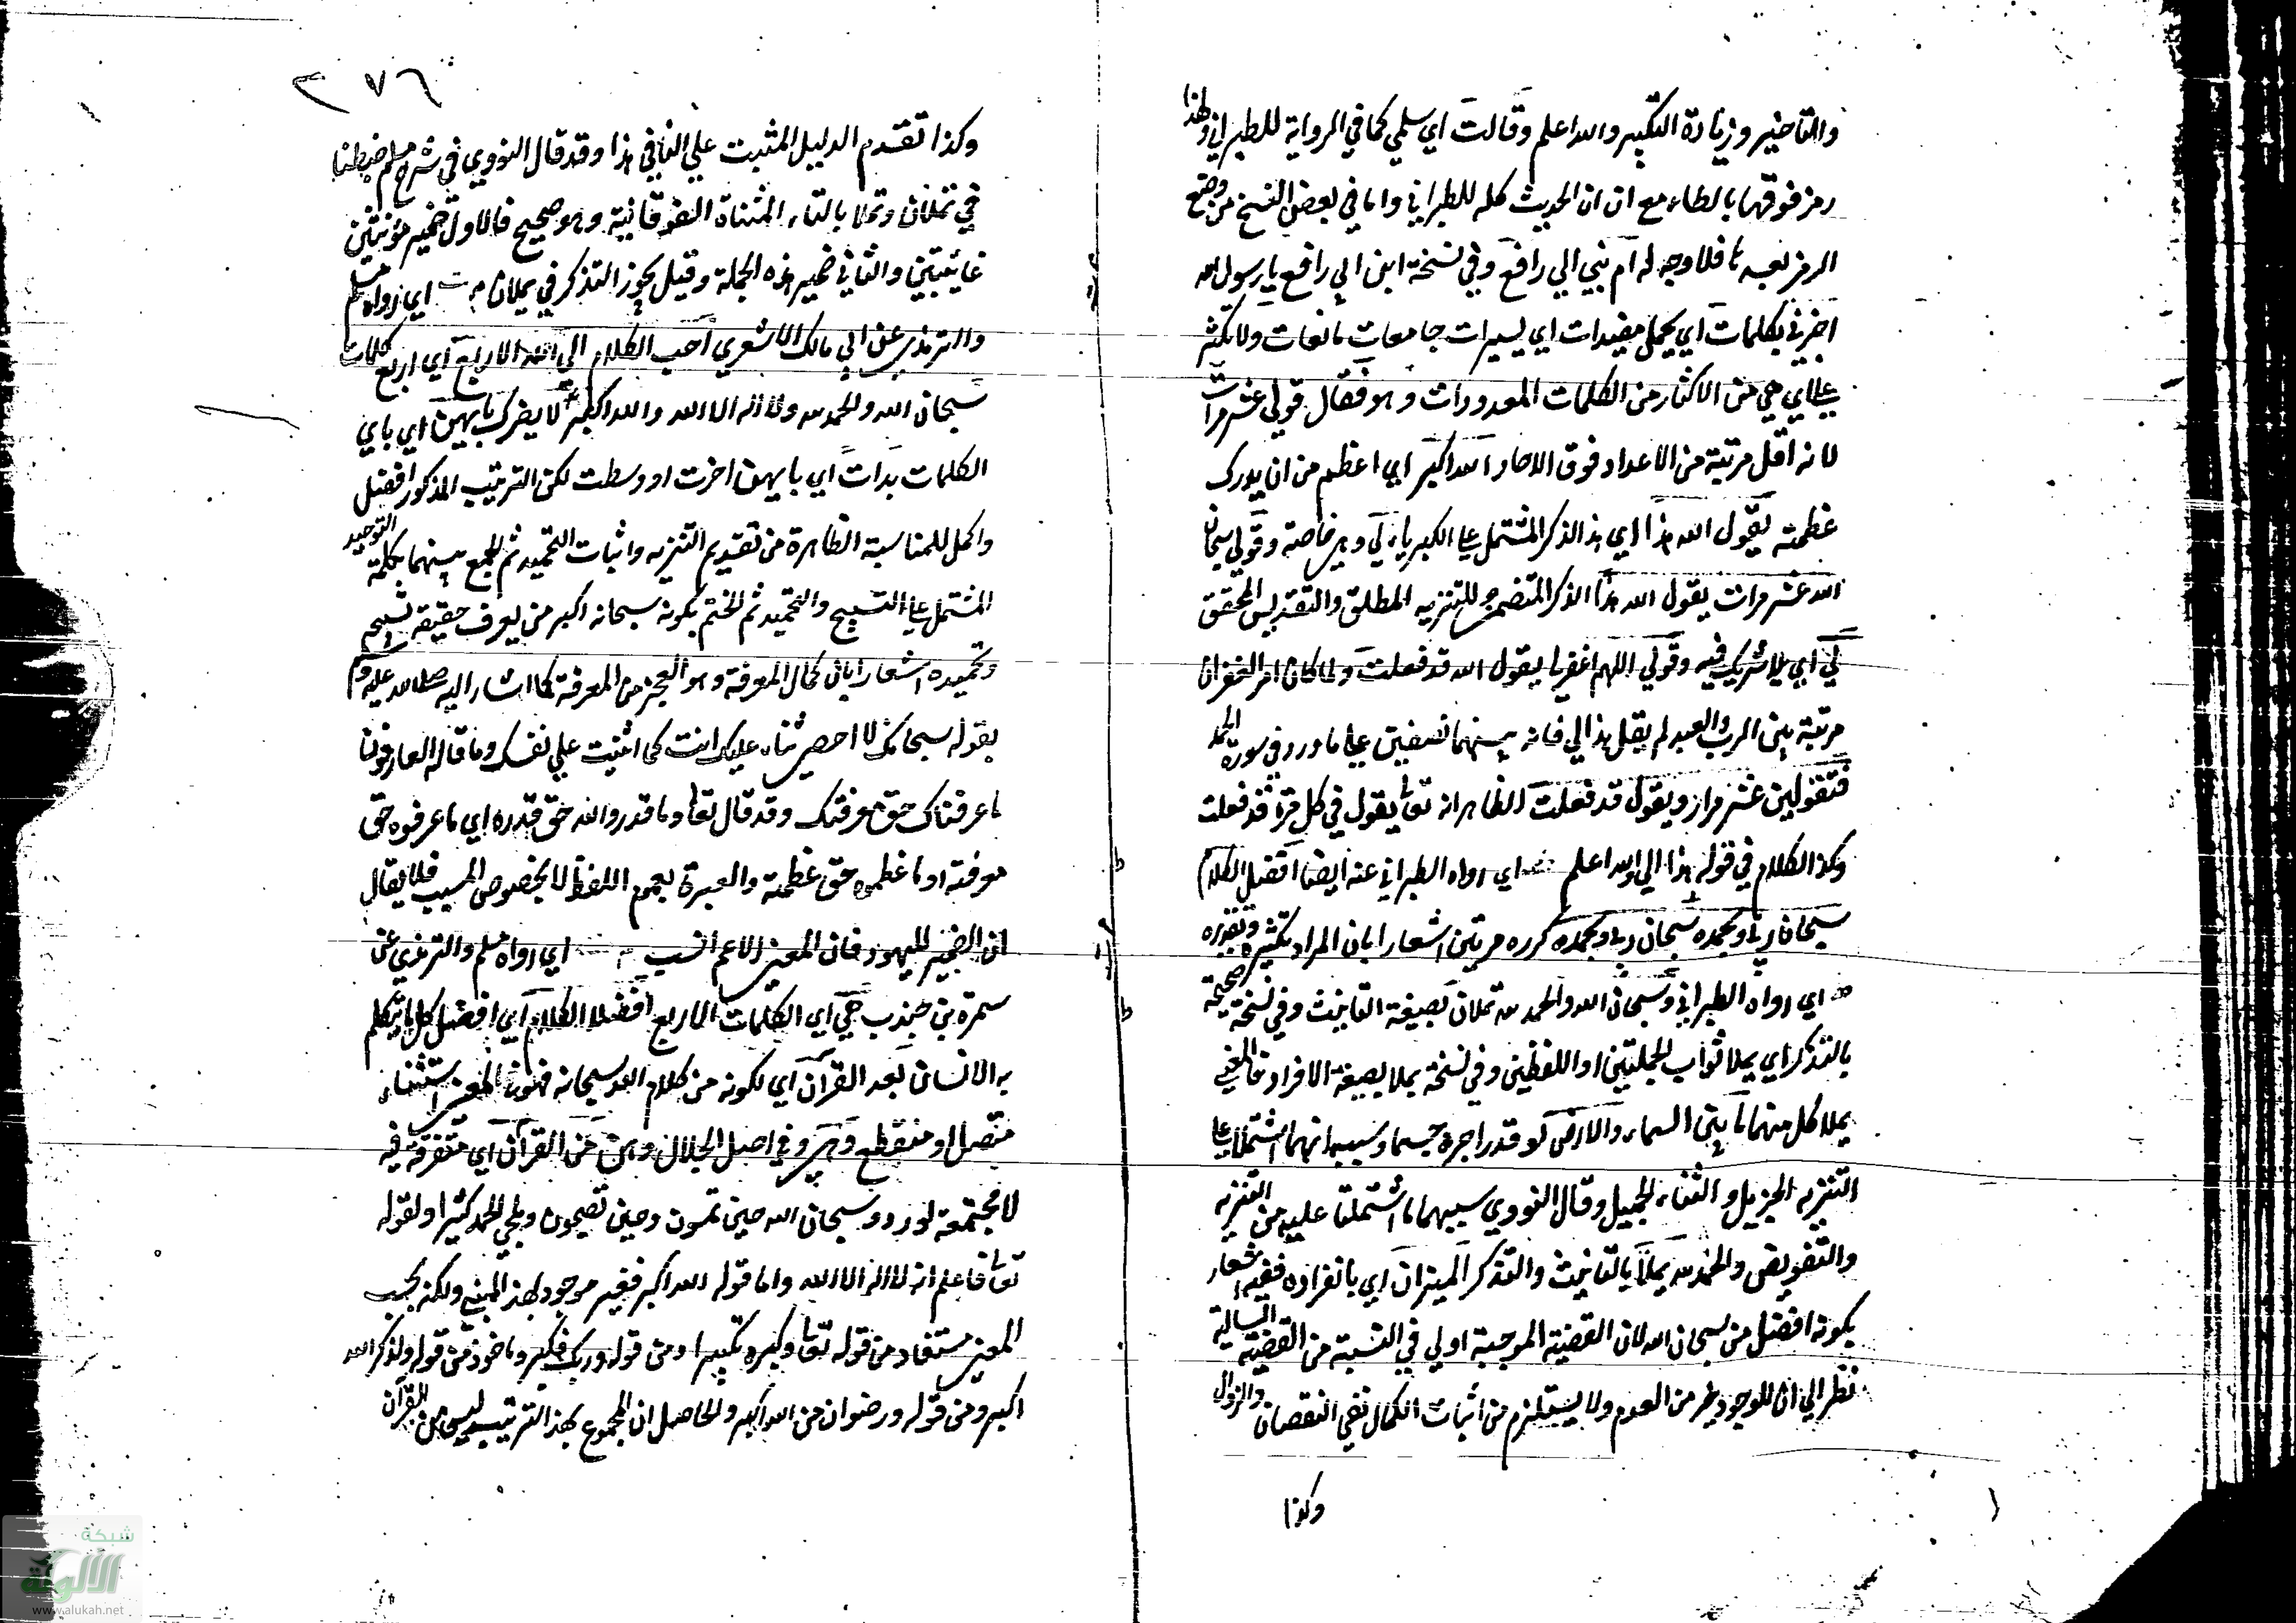 والتاخير وزيادة التكبير والله اعلم وقالت اي سلمي كما في الرواية للطبراني ولهذا
رمز فوقها بالطاء مع ان الحديث كله للطبراني واما في بعض النسخ من وضع
الرمز بعد فلا وجه له ام بني ابي رافع وفي نسخة ابن ابي رافع يا رسول الله
اخبرني بكلمات اي بجمل مفيدات اي يسيرات جامعات مانعات ولا تكثر
علي اي حي من الاكثار من الكلمات المعدودات وهو فقال قولي عشر مرات
لانه اقل مرتبة من الاعداد فوق الاحاد الله اكبر اي اعظم من ان يدرك
عظمته يقول الله هذا اي هذا الذكر المشتمل على الكبرياء لي وبي خاصة وقولي سبحان
الله عشر مرات يقول الله هذا الذكر المتضمن للتنزيه المطلق والتقديس المحقق
لي اي بلا شريك فيه وقولي اللهم اغفر لي يقول الله قد فعلت ولما كان امر الغفران
مرتبة بين الرب والعبد لم يقل هذا لي فانه بينهما نصفين على ما ورد في سورة الحمد
فتقولين عشر مرار ويقول قد فعلت الظاهر انه تعالى يقول في كل مرة قد فعلت
وكذا الكلام في قوله هذا لي والله اعلم اي رواه الطبراني عنه ايضا افضل الكلام
سبحان ربي وبحمده سبحان ربي وبحمده كرره مرتين اشعارا بان المراد تكثيره وتقريره
اي رواه الطبراني وسبحان الله والحمد لله تملان بصيغة التانيث وفي نسخة صحيحة
بالتذكر اي يملا ثواب الجملتين او اللفظين وفي نسخة يملا بصيغة الافراد فالمعني
يملا كل منهما ما بين السماء والارض لو قدر اجره جسما وسببه انهما اشتملا على
التنزيه الجزيل والثناء الجميل وقال النووي سببهما ما اشتملتا عليه من التنزيه
والتفويض والحمد لله يملا بالتانيث والتذكر الميزان اي بانفراده ففيه اشعار
بكونه افضل من سبحان الله لان القضية الموجبة اولي في النسبة من القضية السالبة
نظر الي ان الوجود خير من العدم ولا يستلزم من اثبات الكمال نفي النقصان والزوال
وكذا
٢٧٦
وكذا تقدم الدليل المثبت علي النافي هذا وقد قال النووي في شرح مسلم ضبطنا
في تملان وتملا بالتاء المثناة الفوقانية وهو صحيح فالاول ضمير مؤنثتين
غائبتين والثاني ضمير هذه الجملة وقيل يجوز التذكر في يملان م ت اي رواه مسلم
والترمذي عن ابي مالك الاشعري احب الكلام الي الله الاربع اي اربع كلمات
سبحان الله والحمد لله ولا اله الا الله والله اكبر لا يضرك بايهن اي باي
الكلمات بدات اي بايهن اخرت او وسطت لكن الترتيب المذكور افضل
واكمل للمناسبة الظاهرة من تقديم التنزيه واثبات التحميد ثم الجمع بينهما بكلمة التوحيد
المشتمل على التسبيح والتحميد ثم الختم بكونه سبحانه اكبر من يعرف حقيقة تسبيحه
وتحميده اشعارا بان كمال المعرفة وهو العجز من المعرفة كما اشار اليه صلى الله عليه وسلم
بقوله سبحانك لا احصي ثناء عليك انت كما اثنيت علي نفسك وما قاله العارفون
ما عرفناك حق معرفتك وقد قال تعالى وما قدروا الله حق قدره اي ما عرفوه حق
معرفته او ما عظموه حق عظمته والعبرة بعموم اللفظ لا بخصوص السبب فلا يقال
ان الضمير لليهود فان المعني الاعم انسب اي رواه مسلم والترمذي عن
سمرة بن جندب هي اي الكلمات الاربع افضل الكلام اي افضل كل ما يتكلم
به الانسان بعد القران اي لكونه من كلام الله سبحانه فهو في المعني استثناء
متصل او منقطع وهي وفي اصل الجلال وهن من القرآن اي متفرقة فيه
لا مجتمعة لورود سبحان الله حين تمسون وحين تصبحون ومجي الحمد كثيرا ولقوله
تعالى فاعلم انه لا اله الا الله واما قوله الله اكبر فغير موجود بهذا المبني ولكنه بحسب
المعني مستفاد من قوله تعالى وكبره تكبيرا ومن قوله وربك فكبر وماخوذ من قوله ولذكر الله
اكبر ومن قوله ورضوان من الله اكبر والحاصل ان المجموع بهذا الترتيب ليس من القرآن
شبكة
الألوكة
www.alukah.net